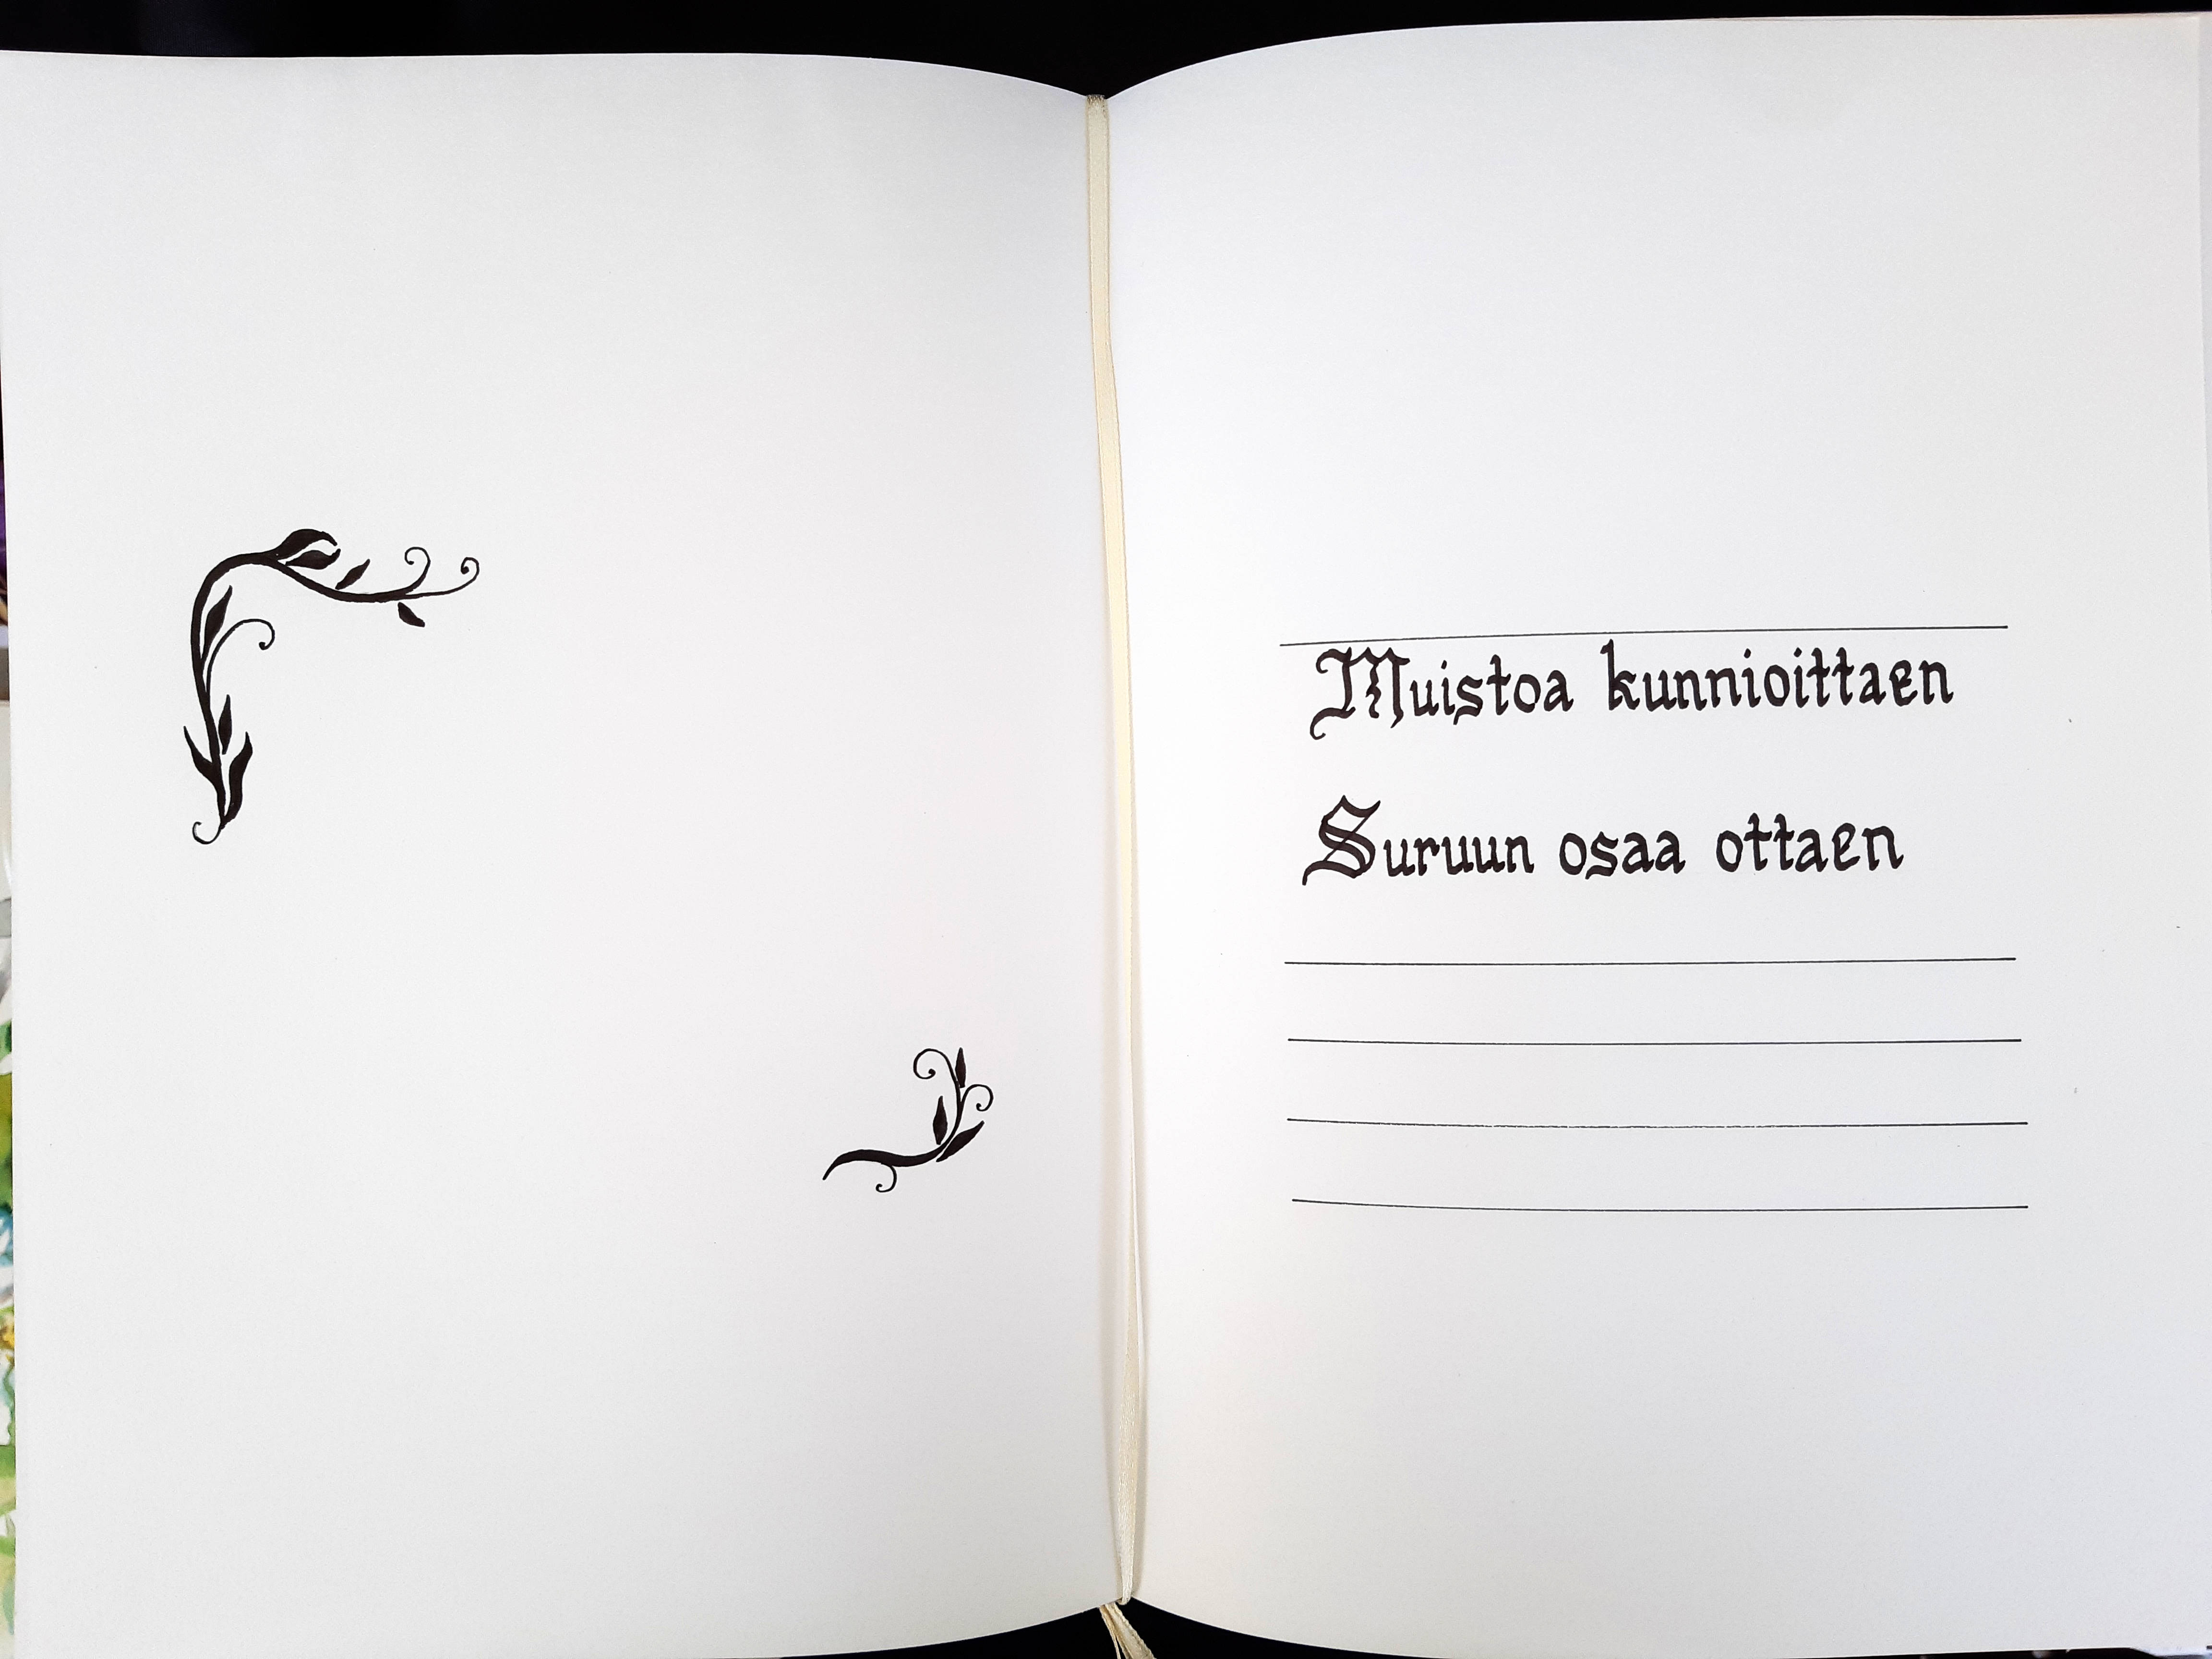 Muistoa kunnioittaen
Suruun osaa ottaen